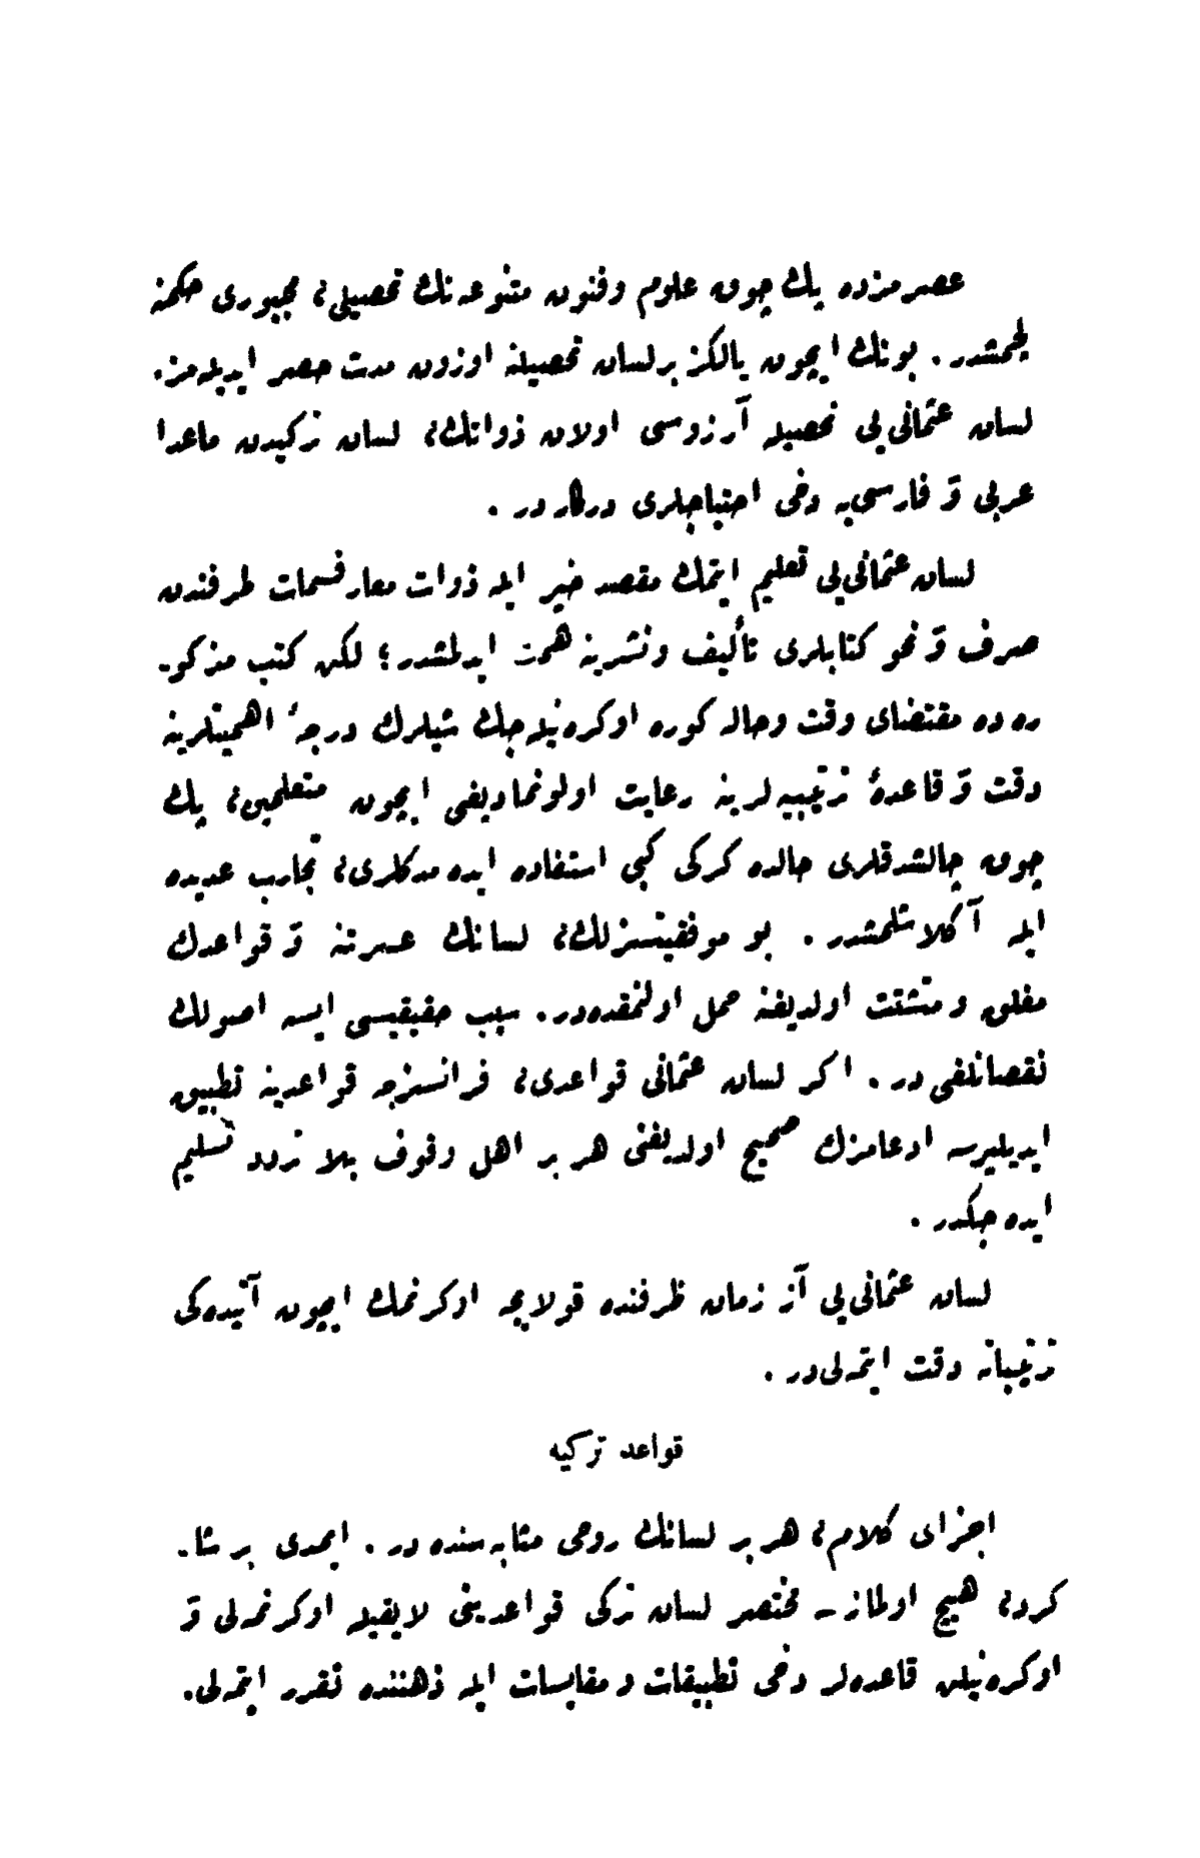 عصرمزده پك چوق علوم وفنون متنوعه‌نك تحصيلی، مجبوری حكمنه
كچمشدر . بونك ايچون يالكز بر لسان تحصيلنه اوزون مدت حصر ايديله‌مز.
لسان عثمانی‌يی تحصيله آرزوسی اولان ذواتك، لسان تركيدن ماعدا
عربی و فارسی‌يه دخی احتياجلری دركار در .
لسان عثمانی‌يی تعليم ايتمك مقصد خير ايله ذوات معارفسمات طرفندن
صرف و نحو كتابلری تأليف ونشرينه همت ايدلمشدر ؛ لكن كتب مذكو-
ره ده مقتضای وقت وحاله كوره اوكره‌نيله‌جك شيلرك درجۀ اهميتلرينه
دقت و قاعدۀ ترتيبيه‌لرينه رعايت اولونماديغی ايچون متعلمين، پك
چوق چالشدقلری حالده كركی كبی استفاده ايده‌مدكلری، تجارب عديده
ايله آكلاشلمشدر . بو موفقيتسزلك، لسانك عسرتنه و قواعدك
مغلق ومتشتت اولديغنه حمل اولنمقده‌در. سبب حقيقيسی ايسه اصولك
نقصانلغی در . اكر لسان عثمانی قواعدی، فرانسزجه قواعدينه تطبيق
ايديليرسه ادعامزك صحيح اولديغنی هر بر اهل وقوف بلا تردد تسليم
ايده‌جكدر .
لسان عثمانی‌يی آز زمان ظرفنده قولايجه اوكرنمك ايچون آتيده‌كی
ترتيباته دقت ايتمه‌لی‌در .
قواعد تركيه
اجزای كلام، هر بر لسانك روحی مثابه‌سنده در . ايمدی بر شا-
كرد، هيچ اولماز - مختصر لسان تركی قواعدينی لايقيله اوكرنمه‌لی و
اوكره‌نيلن قاعده‌لر دخی تطبيقات ومقايسات ايله ذهننده تقرر ايتمه‌لی.